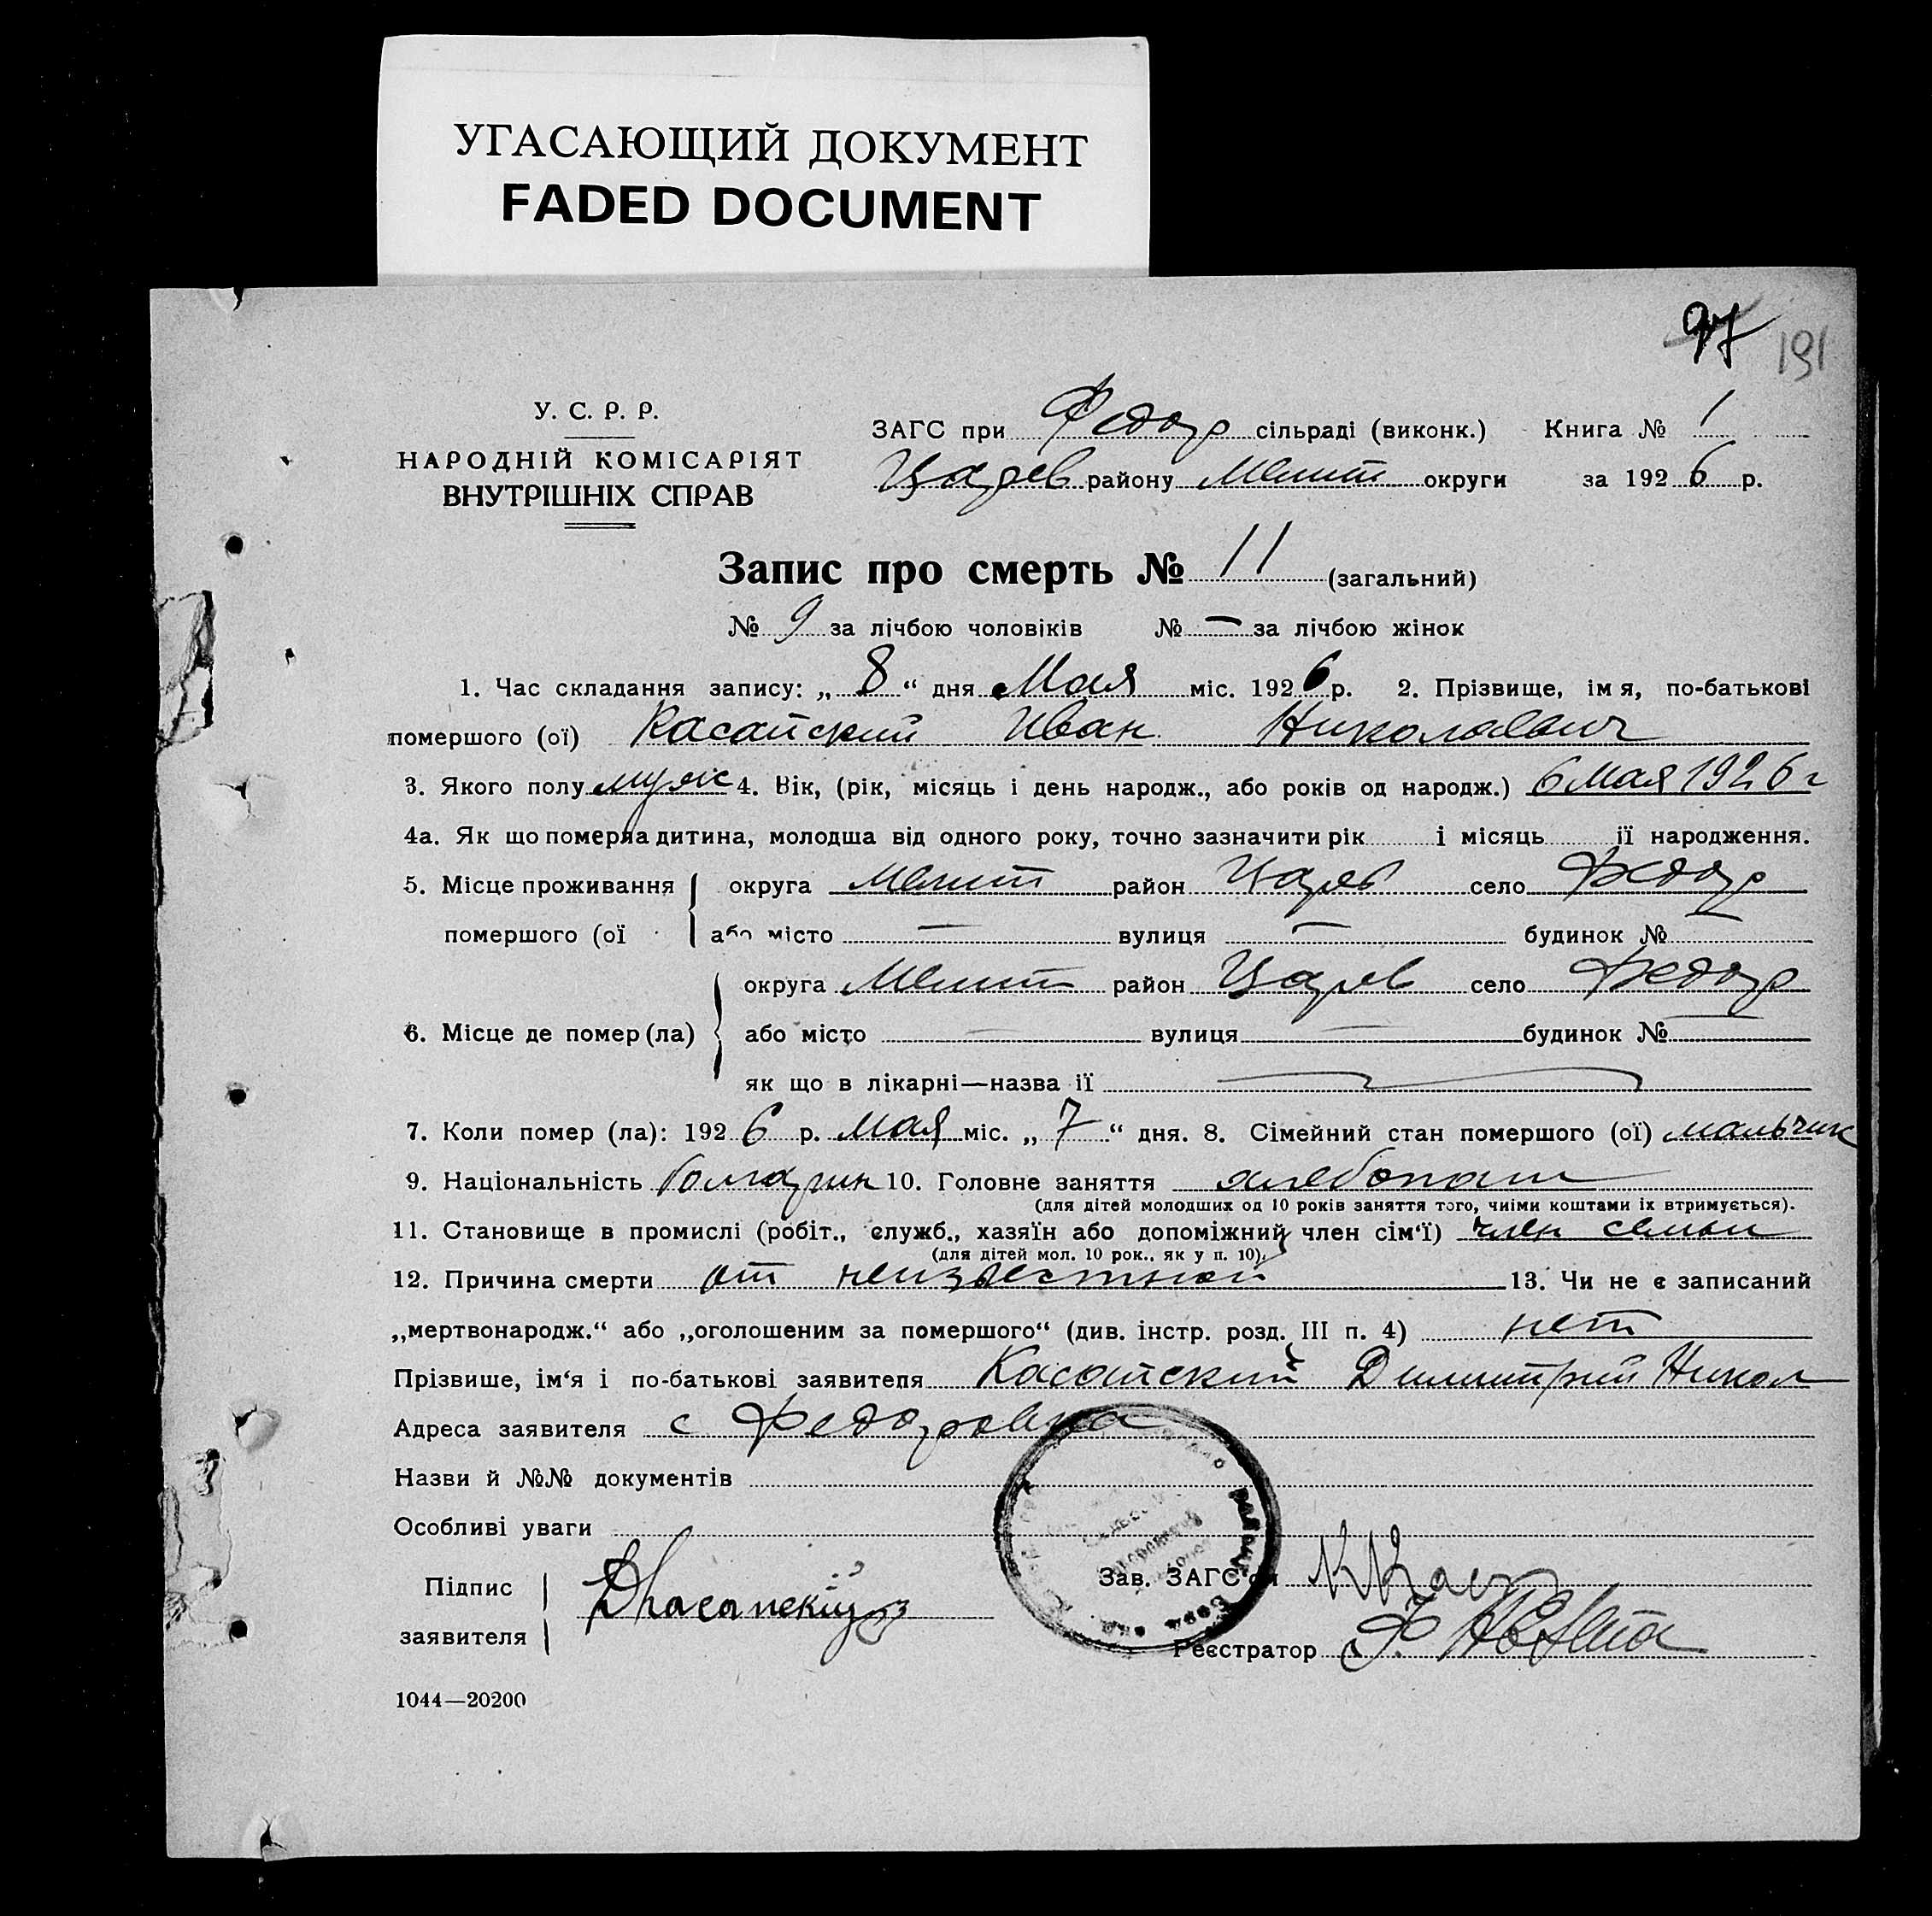 УГАСАЮЩИЙ ДОКУМЕНТ
FADED DOCUMENT
97 191
У. С. Р. Р.
НАРОДНІЙ КОМІСАРІЯТ
ВНУТРІШНІХ СПРАВ
ЗАГС при Федор сільраді (виконк.) Книга № 1
Царев району Мелит округи за 1926 р.
Запис про смерть № 11 (загальний)
№ 9 за лічбою чоловіків № — за лічбою жінок
1. Час складання запису: „ 8 “ дня Мая міс. 1926 р. 2. Прізвище, імя, по-батькові
помершого (ої) Касайский Иван Николаевич
3. Якого полу муж 4. Вік, (рік, місяць і день народж., або років од народж.) 6 Мая 1926 г
4а. Як що померла дитина, молодша від одного року, точно зазначити рік і місяць її народження.
5. Місце проживання помершого (ої округа Мелит район Царев село Федор
або місто — вулиця — будинок № —
6. Місце де помер (ла) округа Мелит район Царев село Федор
або місто — вулиця — будинок № —
як що в лікарні—назва її —
7. Коли помер (ла): 1926 р. Мая міс. „ 7 “ дня. 8. Сімейний стан помершого (ої) мальчик
9. Національність болгарин 10. Головне заняття хлебопаш
(для дітей молодших од 10 років заняття того, чиїми коштами їх втримується).
11. Становище в промислі (робіт., служб., хазяїн або допоміжний член сім‘ї) член семьи
(для дітей мол. 10 рок., як у п. 10).
12. Причина смерти от неизвестной 13. Чи не є записаний
„мертвонародж.“ або „оголошеним за помершого“ (див. інстр. розд. III п. 4) нет
Прізвише, ім‘я і по-батькові заявителя Касайский Димитрий Никол
Адреса заявителя с Федоровка
Назви й №№ документів
Особливі уваги
Підпис заявителя
Зав. ЗАГС‘ом
Реєстратор
1044—20200